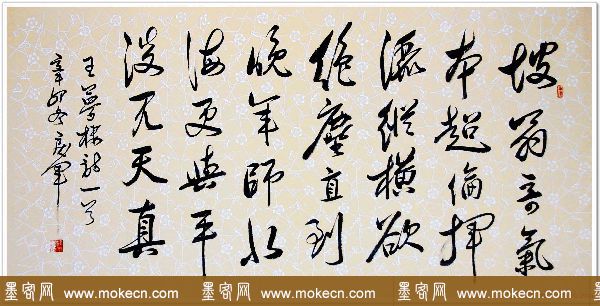 坡翁奇氣
本超倫揮
灑縱橫欲
絕塵直到
晚年師北
海更與平
淡见天真
王夢樓詩一首
辛卯冬
墨客网 www.mokecn.com 墨客网 www.mokecn.com 墨客网 www.mokecn.com